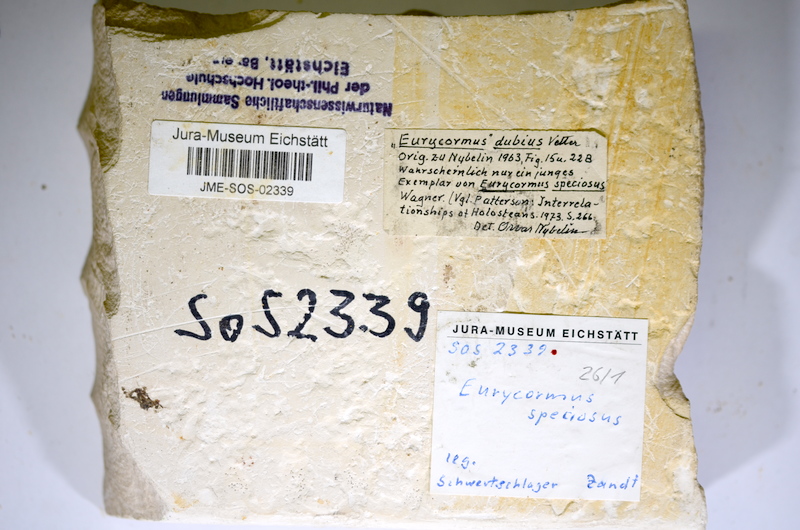 Naturwissenschaftliche Sammlungen
der Phil.-theol. Hochschule
Eichstätt,
Jura-Museum Eichstätt
JME-SOS-02339
„Eurycormus" dubius Vetter
Orig. zu Nybelin 1963, Fig. 15 u. 22B
Wahrschernlich nur ein junges
Exemplar von Eurycormus speciosus
Wagner. (Vgl. Patterson: Interrela-
tionships of Holosteans. 1973. S. 266.
Det. Orvar Nybelin
SoS2339
JURA-MUSEUM EICHSTÄTT
SOS 2339
26/1
Eurycormus
speciosus
leg.
Schwertschlager Zandt